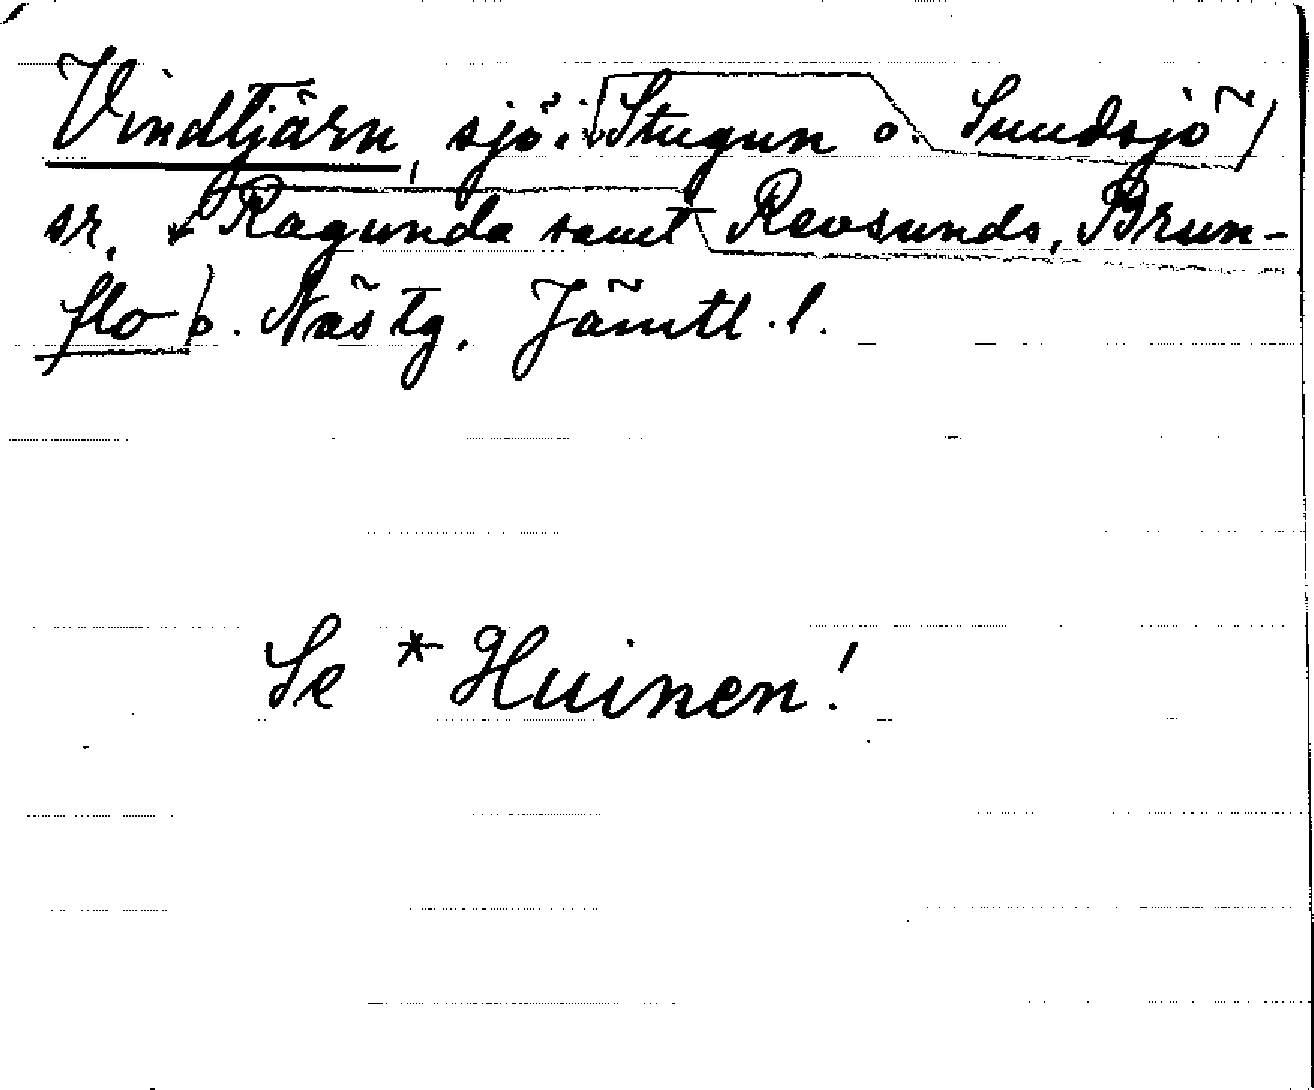 Vindtjärn, sjö i Stugun o. Sundsjö
sr, Ragunda samt Revsunds, Brun-
flo o. Näs tg. Jämtl. l.
Se *Huinen!